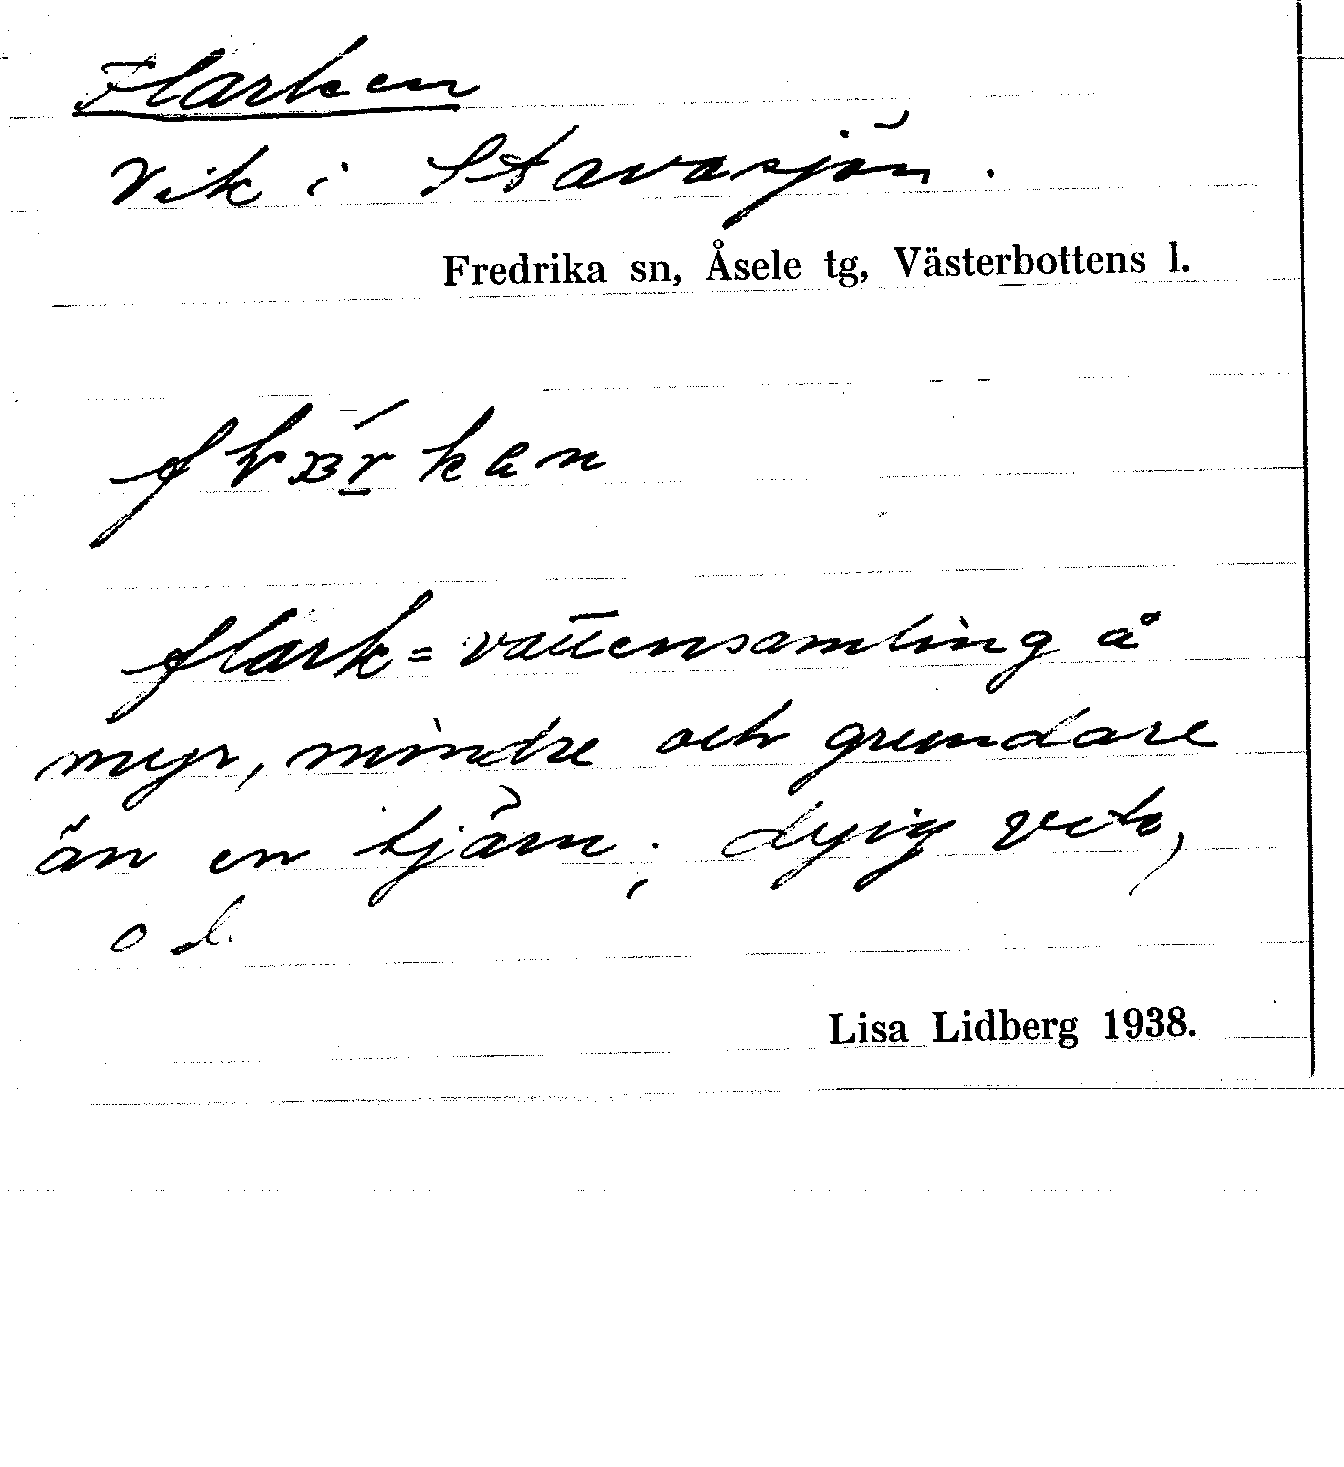 Flarken
Vik i Stavasjön.
Fredrika sn, Åsele tg, Västerbottens l.
flark = vattensamling å
myr, mindre och grundare
än en tjärn; dyig vik,
o d.
Lisa Lidberg 1938.